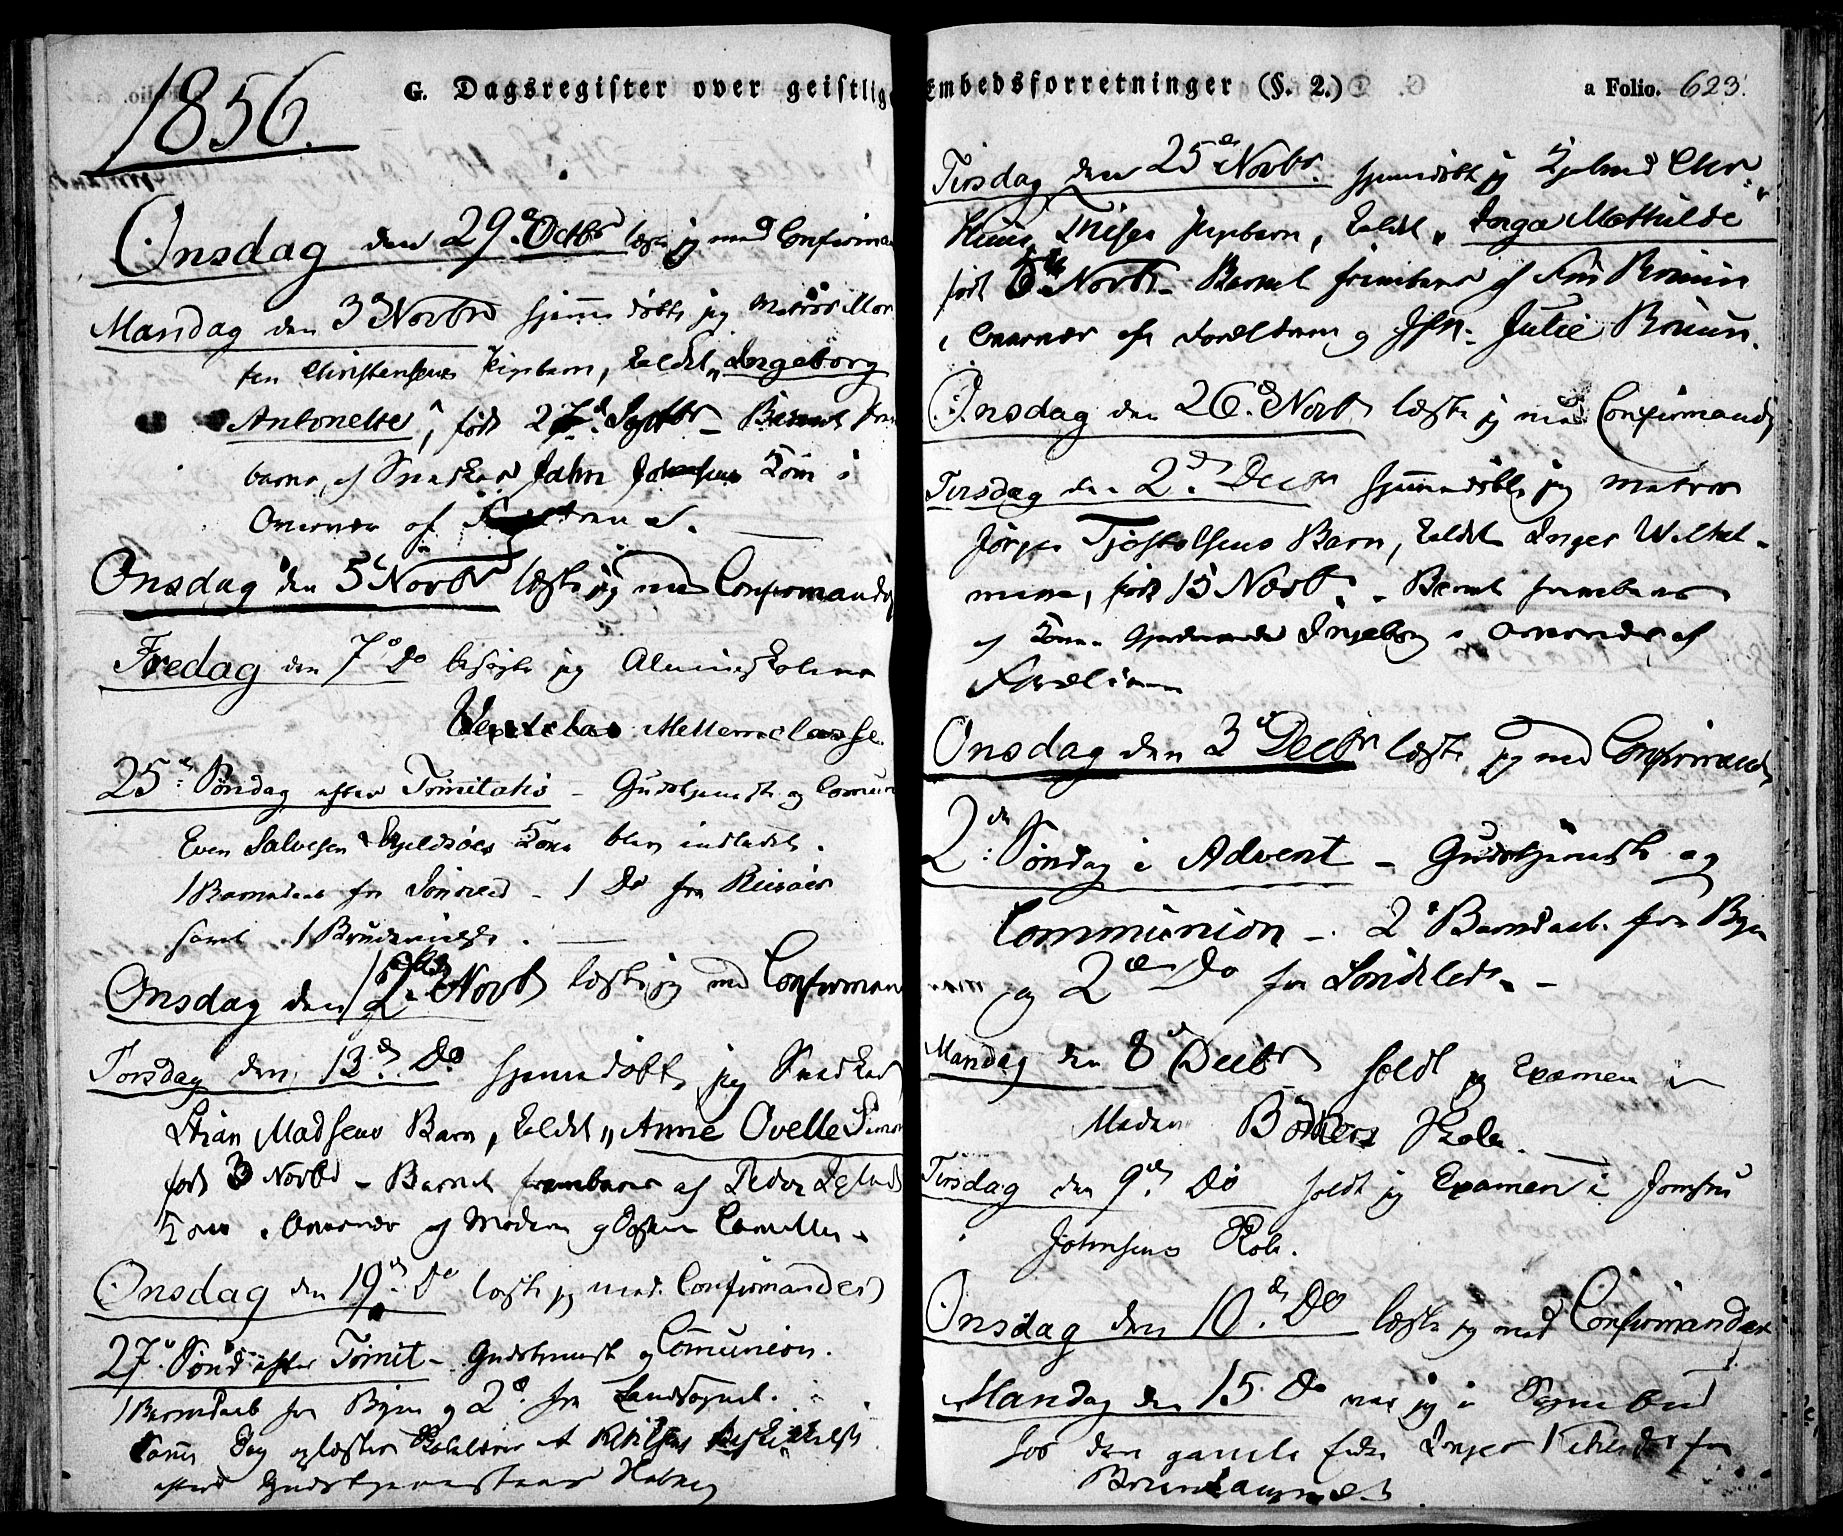 1856.
G. Dagsregister over geistlig
Onsdag den 29de Octbr læste jeg med Confirman
Mandag den 3d Novbr hjemmedøbte jeg Matros Mor
ten Christensens Pigebarn, kaldet "Ingeborg
Antonette", født 27d Septbr - Barnet frem
baaret af Snedker Jahn Johnsens Kone i
Overvær af Forældrene.
Onsdag den 5te Novbr læste jeg med Confirmander
Fredag den 7d Do besøgte jeg Almueskolens
Mellemclasse
25de Søndag efter Trinitatis - Gudstjeneste og Comun
Even Salvesen Kone blev indledet.
1 Barnedaab fra Søndeled - 1 Do fra Risøer
samt 1 Brudevielse.
Onsdag den 12te Novbr læste jeg med Confirman
Torsdag den 13de Do hjemmedøbte jeg Snedker
Stian Madsens Barn, kaldet "Anne Ovelle Simon
født 3 Novbr - Barnet frembaaret af Peder
Kone i Overvær af Moderen og
Onsdag den 19de Do læste jeg med Confirmander
27de Sønd: efter Trinit - Gudstjeneste og Comunion.
1 Barnedaab fra Byen og 2de fra Landsognet.
Samme Dag oplæstes
efter Gudstjenestens
Embedsforretninger (§. 2.)
a Folio. 623.
Tirsdag den 25de Novbr. hjemmedøbte jeg
Pigebarn, kaldet "Inga Mathilde"
født 5te Novbr - Barnet frembaaret af Bruun
i Overvær af Forældrene og Jfr. Julie Bruun.
Onsdag den 26de Novb læste jeg med Confirmander
Tirsdag den 2den Decbr hjemmedøbte jeg Matros
Jørgen Tjøstolsens Barn, kaldet Inger Wilhel-
mine, født 15 Novbr - Barnet frembaaret
af Kone Ingeborg i Overværelse af
Forældrene
Onsdag den 3d Decbr læste jeg med Confirmand
2den Søndag i Advent - Gudstjeneste og
Communion - 2de Barnedaab fra Byen
og 2de Do fra Søndeled. -
Mandag den 8d Decbr holdt jeg Examen i
Madam Skole.
Tirsdag den 9de Do holdt jeg Examen i Jomfru
Johnsens Skole.
Onsdag den 10de Do læste jeg med Confirmander
Mandag den 15 Do var jeg i Sognebud
hos den gamle Enke Inger fra